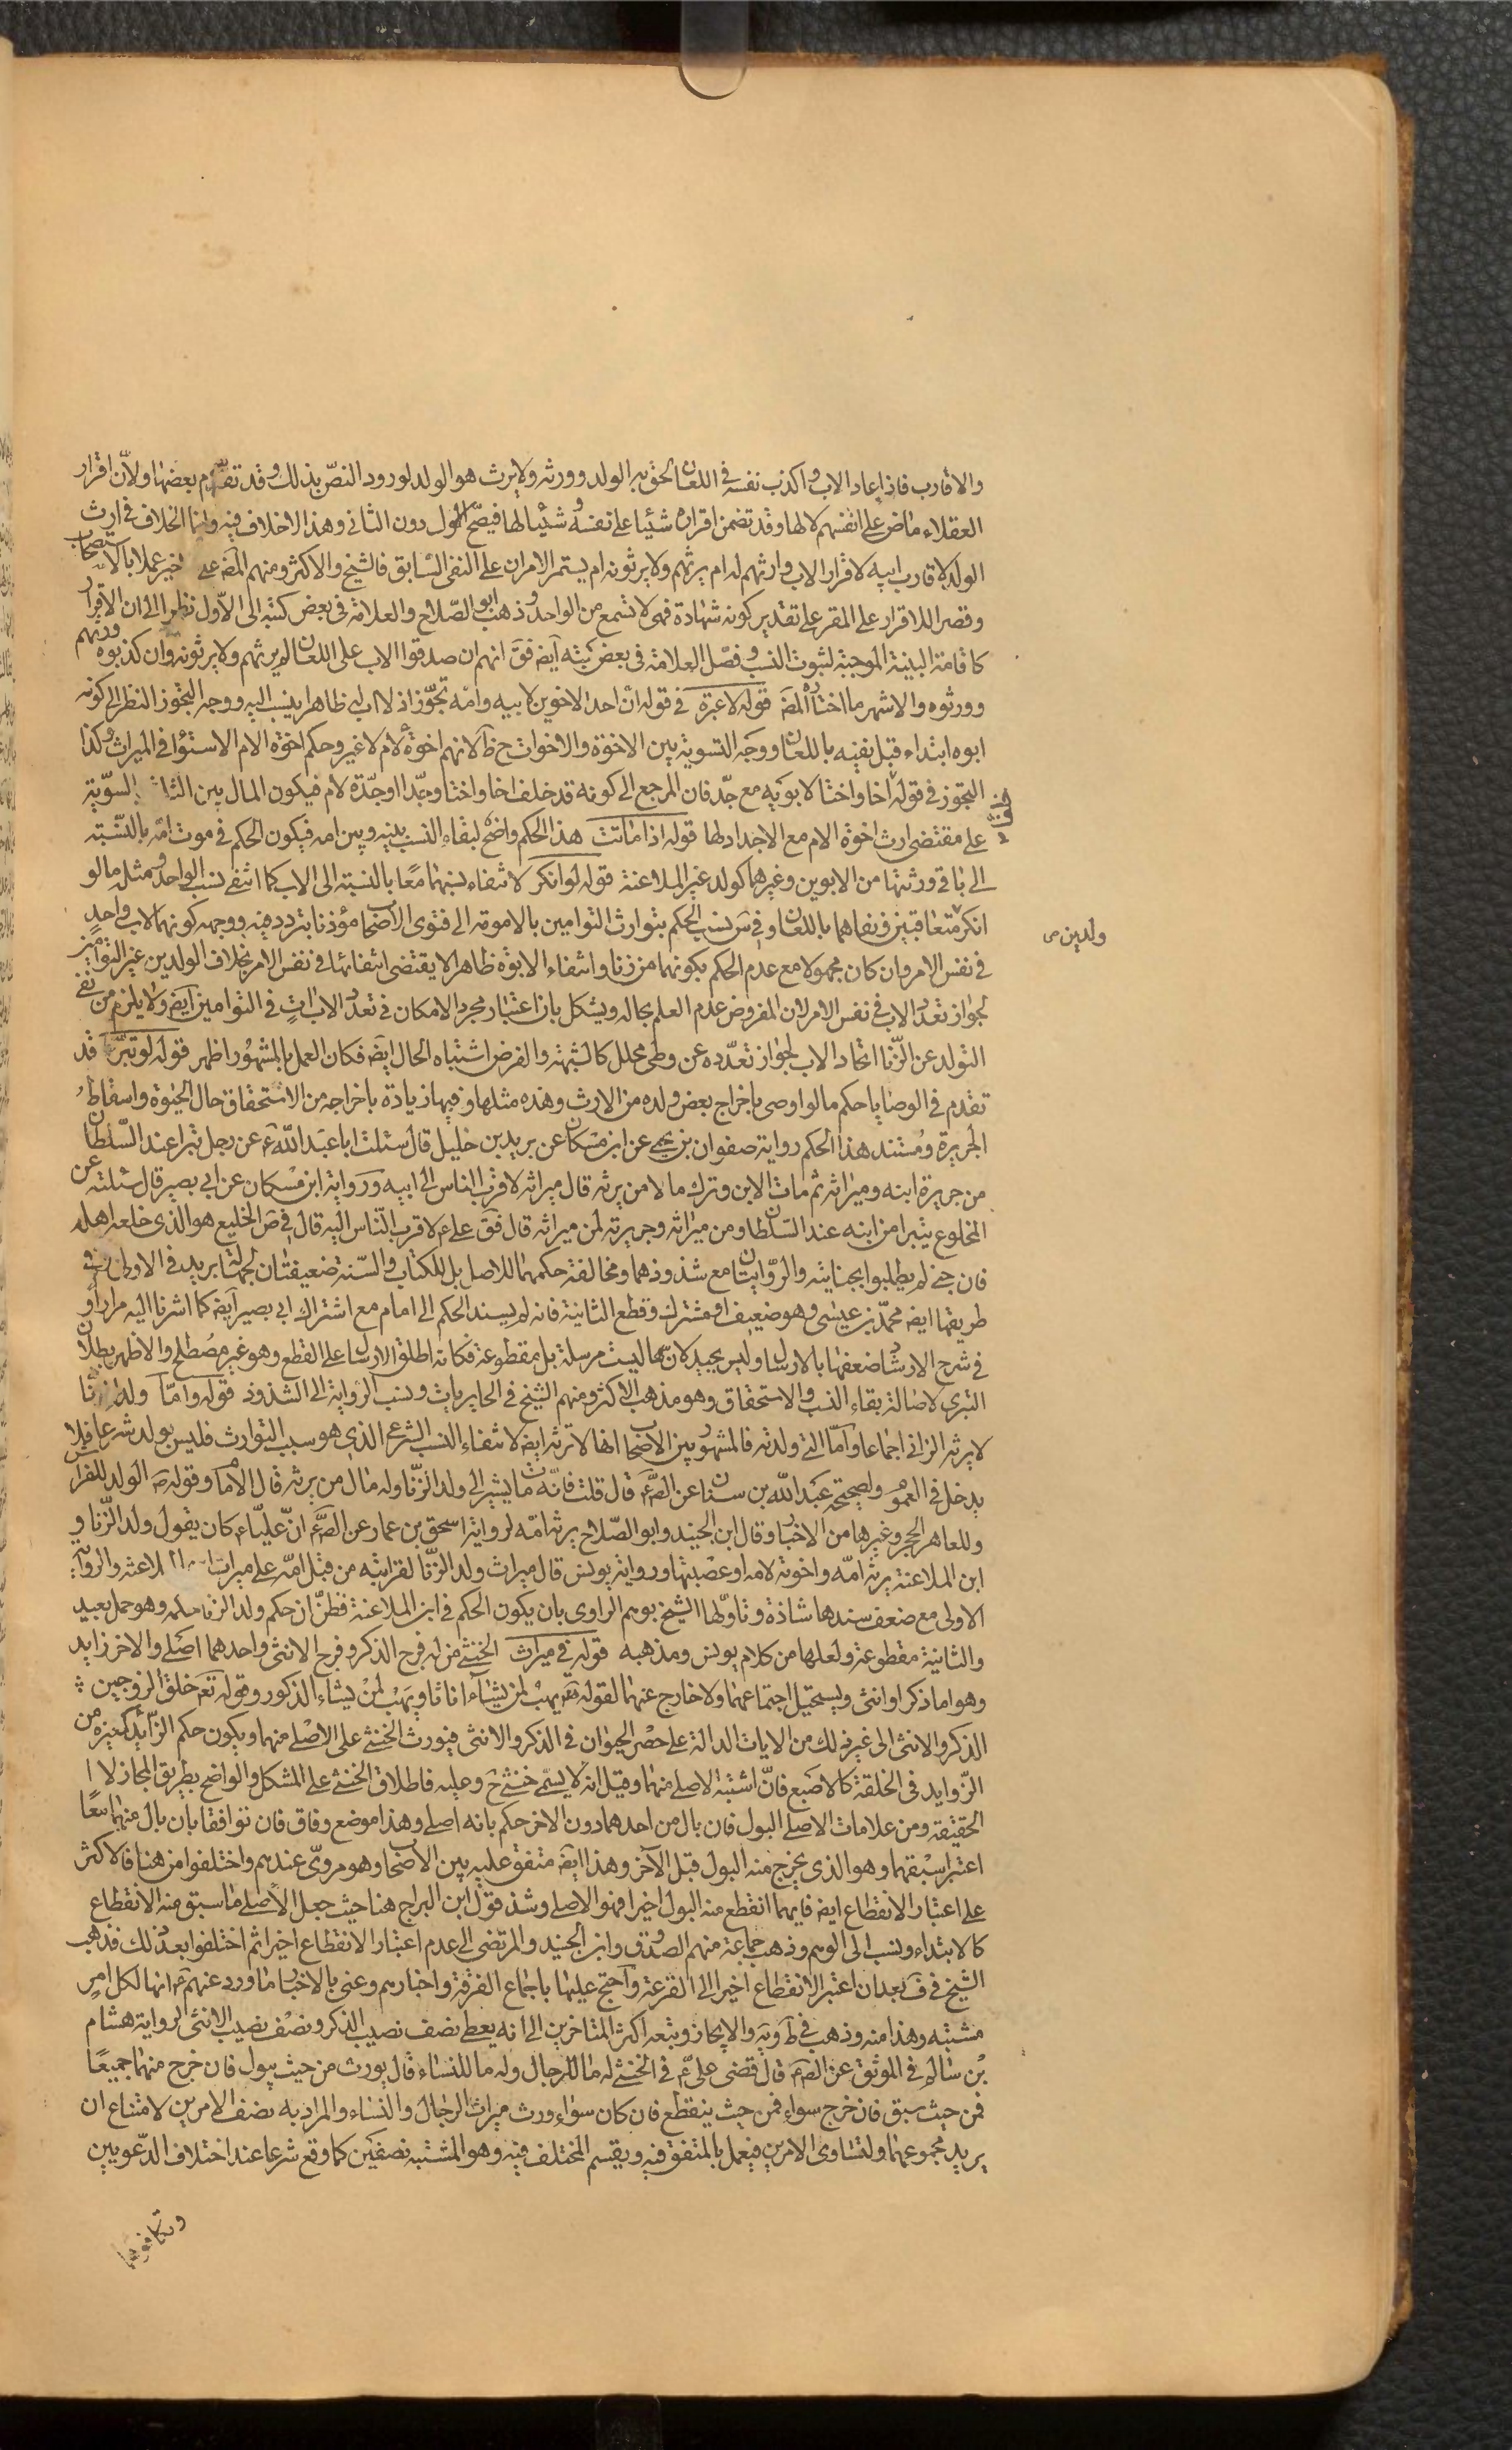 والاقارب فاذا عاد الاب واكذب نفسه فى اللعان لحق به الولد وورثه ولا يرث هو الولد لورود النصّ بذلك وقد تقدّم بعضها ولانّ اقرار
العقلاء ماض على انفسهم لا لها وقد تضمن اقراره شيئا على نفسه وشيئا لها فيصحّ الاول دون الثانى وهذا لا خلاف فيه وانما الخلاف فى ارث
الولد لاقارب ابيه لاقرار الاب وارثهم له ام يرثهم ولا يرثونه ام يستمر الامران على النفى السابق فالشيخ والاكثر ومنهم المصَ على الاخير عملا بالاستصحاب
وقصرا للاقرار على المقر على تقدير كونه شهادة فهى لا تسمع من الواحد وذهب ابو الصّلاح والعلامة فى بعض كتبه الى الاّول نظرا الى ان الاقرار
كاقامة البينة الموجبة لثبوت النسب وفصّل العلامة فى بعض كتبه ايضَ فقَ انهم ان صدقوا الاب على اللعان لم يرثهم ولا يرثونه وان كذبوه ورثهم
وورثوه والاشهر ما اختاره المصَ قوله لا عبرة فى قوله ان احد الاخوين لابيه وامّه تجوّز اذ لا اب له ظاهرا ينسب اليه ووجه التجوز النظر الى كونه
ابوه ابتداء قبل نفيه باللعان ووجه التسوية بين الاخوة والاخوات حَ ظَ لانهم اخوة لام لا غير وحكم اخوة الام الاستواء فى الميراث وكذا
التجوز فى قوله اخا واختا لابويه مع جدّ فان المرجع الى كونه قد خلف اخا واختا وجدّا او جدّة لام فيكون المال بين الثلاثة بالسّوية
على مقتضى ارث اخوة الام مع الاجداد لها قوله اذا ماتت هذا الحكم واضح لبقاء النسب بينه وبين امه فيكون الحكم فى موت امّه بالنّسبة
الى باقى ورثتها من الابوين وغيرهما كولد غير الملاعنة قوله لو انكر لانتفاء نسبهما معًا بالنسبة الى الاب كما انتفى نسب الواحد ومثله ما لو
انكر متعاقبين ونفاهما باللعان وفى سَ نسب الحكم بتوارث التوامين بالامومة الى فتوى الاصحاب مؤذنا بتردد فيه ووجهه كونهما لاب واحدٍ
ولدين ص
فى نفس الامر وان كان مجهولا مع عدم الحكم بكونهما من زنا وانتفاء الابوّة ظاهرا لا يقتضى انتفائها فى نفس الامر بخلاف الولدين غير التوامين
لجواز تعدّد الاب فى نفس الامر لان المفروض عدم العلم بحاله ويشكل بان اعتبار مجرد الامكان فى تعدّد الاب اتٍ فى التوامين ايضَ ولا يلزم من نفى
التولد عن الزّنا اتحاد الاب لجواز تعدّده عن وطى محلل كالشبهة والفرض اشتباه الحال ايضَ فكان العمل بالمشهور اظهر قوله لو تبرّا قد
تقدم فى الوصايا حكم ما لو اوصى باخراج بعض ولده من الارث وهذه مثلها وفيها زيادة باخراجه من الاستحقاق حال الحيوة واسقاط
الجريرة ومستند هذا الحكم رواية صفوان بن يحيى عن ابن مسكان عن بريد بن خليل قال سئلت ابا عبد اللّه عَ عن رجل تبرا عند السّلطان
من جريرة ابنه وميراثه ثم مات الابن وترك مالا من يرثه قال ميراثه لاقرب الناس الى ابيه ورواية ابن مسكان عن ابى بصير قال سئلته عن
المخلوع يتبرا من ابنه عند السّلطان ومن ميراثه وجريرته لمن ميراثه قال فقَ علىّ عَ لاقرب النّاس اليه قال فى صَ الخليع هو الذى خلعه اهله
فان جنى لم يطلبوا بجنايته والرّوايتان مع شذوذهما ومخالفة حكمهما للاصل بل للكتاب والسّنة ضعيفتان لجهالة بريد فى الاولى وفى
طريقها ايضَ محمّد بن عيسى وهو ضعيف او مشترك وقطع الثانية فانه لم يسند الحكم الى امام مع اشتراك ابى بصير ايضَ كما اشرنا اليه مرارا و
فى شرح الارشاد ضعفها بالارسال وليس بجيد لانّها ليست مرسلة بل مقطوعة فكانه اطلق الارسال على القطع وهو غير مصطلح والاظهر بطلان
التبرى لاصالة بقاء النسب والاستحقاق وهو مذهب الاكثر ومنهم الشيخ فى الحايريات ونسب الرواية الى الشذوذ قوله وامّا ولد الزنا
لا يرثه الزانى اجماعا وامّا التى ولدته فالمشهور بين الاصحاب انها لا ترثه ايضَ لانتفاء النسب الشرعى الذى هو سبب التوارث فليس بولد شرعا فلا
يدخل فى العموم ولصحيحة عبد اللّه بن سنان عن الصَّ عَ قال قلت فانّه مات يشير الى ولد الزنّا وله مال من يرثه قال الامام وقوله صَ الولد للفراش
وللعاهر الحجر وغيرها من الاخبار وقال ابن الجنيد وابو الصّلاح يرثه امّه لرواية اسحق بن عمار عن الصَّ عَ انّ عليّا عَ كان يقول ولد الزّنا و
ابن الملاعنة يرثه امّه واخوته لامه او عصبتها ورواية يونس قال ميراث ولد الزنّا لقرابته من قبل امّه على ميراث ابن الملاعنة والرواية
الاولى مع ضعف سندها شاذة وتاوّلها الشيخ بوهم الراوى بان يكون الحكم فى ابن الملاعنة فظنّ ان حكم ولد الزنا حكمه وهو حمل بعيد
والثانية مقطوعة ولعلها من كلام يونس ومذهبه قوله فى ميراث الخنثى من له فرج الذكر وفرج الانثى واحدهما اصلى والاخر زايد
وهو اما ذكر او انثى ويستحيل اجتماعهما ولا خارج عنهما لقوله تعَ يهب لمن يشاء اناثا ويهب لمن يشاء الذكور وقوله تعَ خلق الزوجين
الذكر والانثى الى غير ذلك من الايات الدالة على حصر الحيوان فى الذكر والانثى فيورث الخنثى على الاصلى منهما ويكون حكم الزّائد كغيره من
الزّوايد فى الخلقة كالاصبع فانّ اشتبه الاصلى منهما وقيل انه لا يسمّى خنثى حَ وعليه فاطلاق الخنثى على المشكل والواضح بطريق المجاز لا
الحقيقة ومن علامات الاصلى البول فان بال من احدهما دون الاخر حكم بانه اصلى وهذا موضع وفاق فان توافقا بان بال منهما معًا
اعتبر اسبقهما وهو الذى يخرج منه البول قبل الآخر وهذا ايضَ متفق عليه بين الاصحاب وهو مروىّ عندهم واختلفوا من هنا فالاكثر
على اعتبار الانقطاع ايضَ فايهما انقطع منه البول اخيرا فهو الاصلى وشذ قول ابن البراج هنا حيث جعل الاصلى ما سبق منه الانقطاع
كالابتداء ونسب الى الوهم وذهب جماعة منهم الصدوق وابن الجنيد والمرتضى الى عدم اعتبار الانقطاع اخيرا ثم اختلفوا بعد ذلك فذهب
الشيخ فى فَ بعد ان اعتبر الانقطاع اخيرا الى القرعة واحتج عليها باجماع الفرقة واخبارهم وعنى بالاخبار ما ورد عنهم عَ انها لكل امرٍ
مشتبه وهذا منه وذهب فى طَ ويَه والايجاز وتبعه اكثر المتاخرين الى انه يعطى نصف نصيب الذكر ونصف نصيب الانثى لرواية هشام
بن سالم فى الموثق عن الصَّ عَ قال قضى علىّ عَ فى الخنثى له ما للرجال وله ما للنساء قال يورث من حيث يبول فان خرج منهما جميعًا
فمن حيث سبق فان خرج سواء فمن حيث ينقطع فان كان سواء ورث ميراث الرجال والنساء والمراد به نصف الامرين لامتناع ان
يريد مجموعهما ولتساوى الامرين فيعمل بالمتفق فيه ويقسم المختلف فيه وهو المشتبه نصفين كما وقع شرعا عند اختلاف الدّعويين
وتكافؤهما